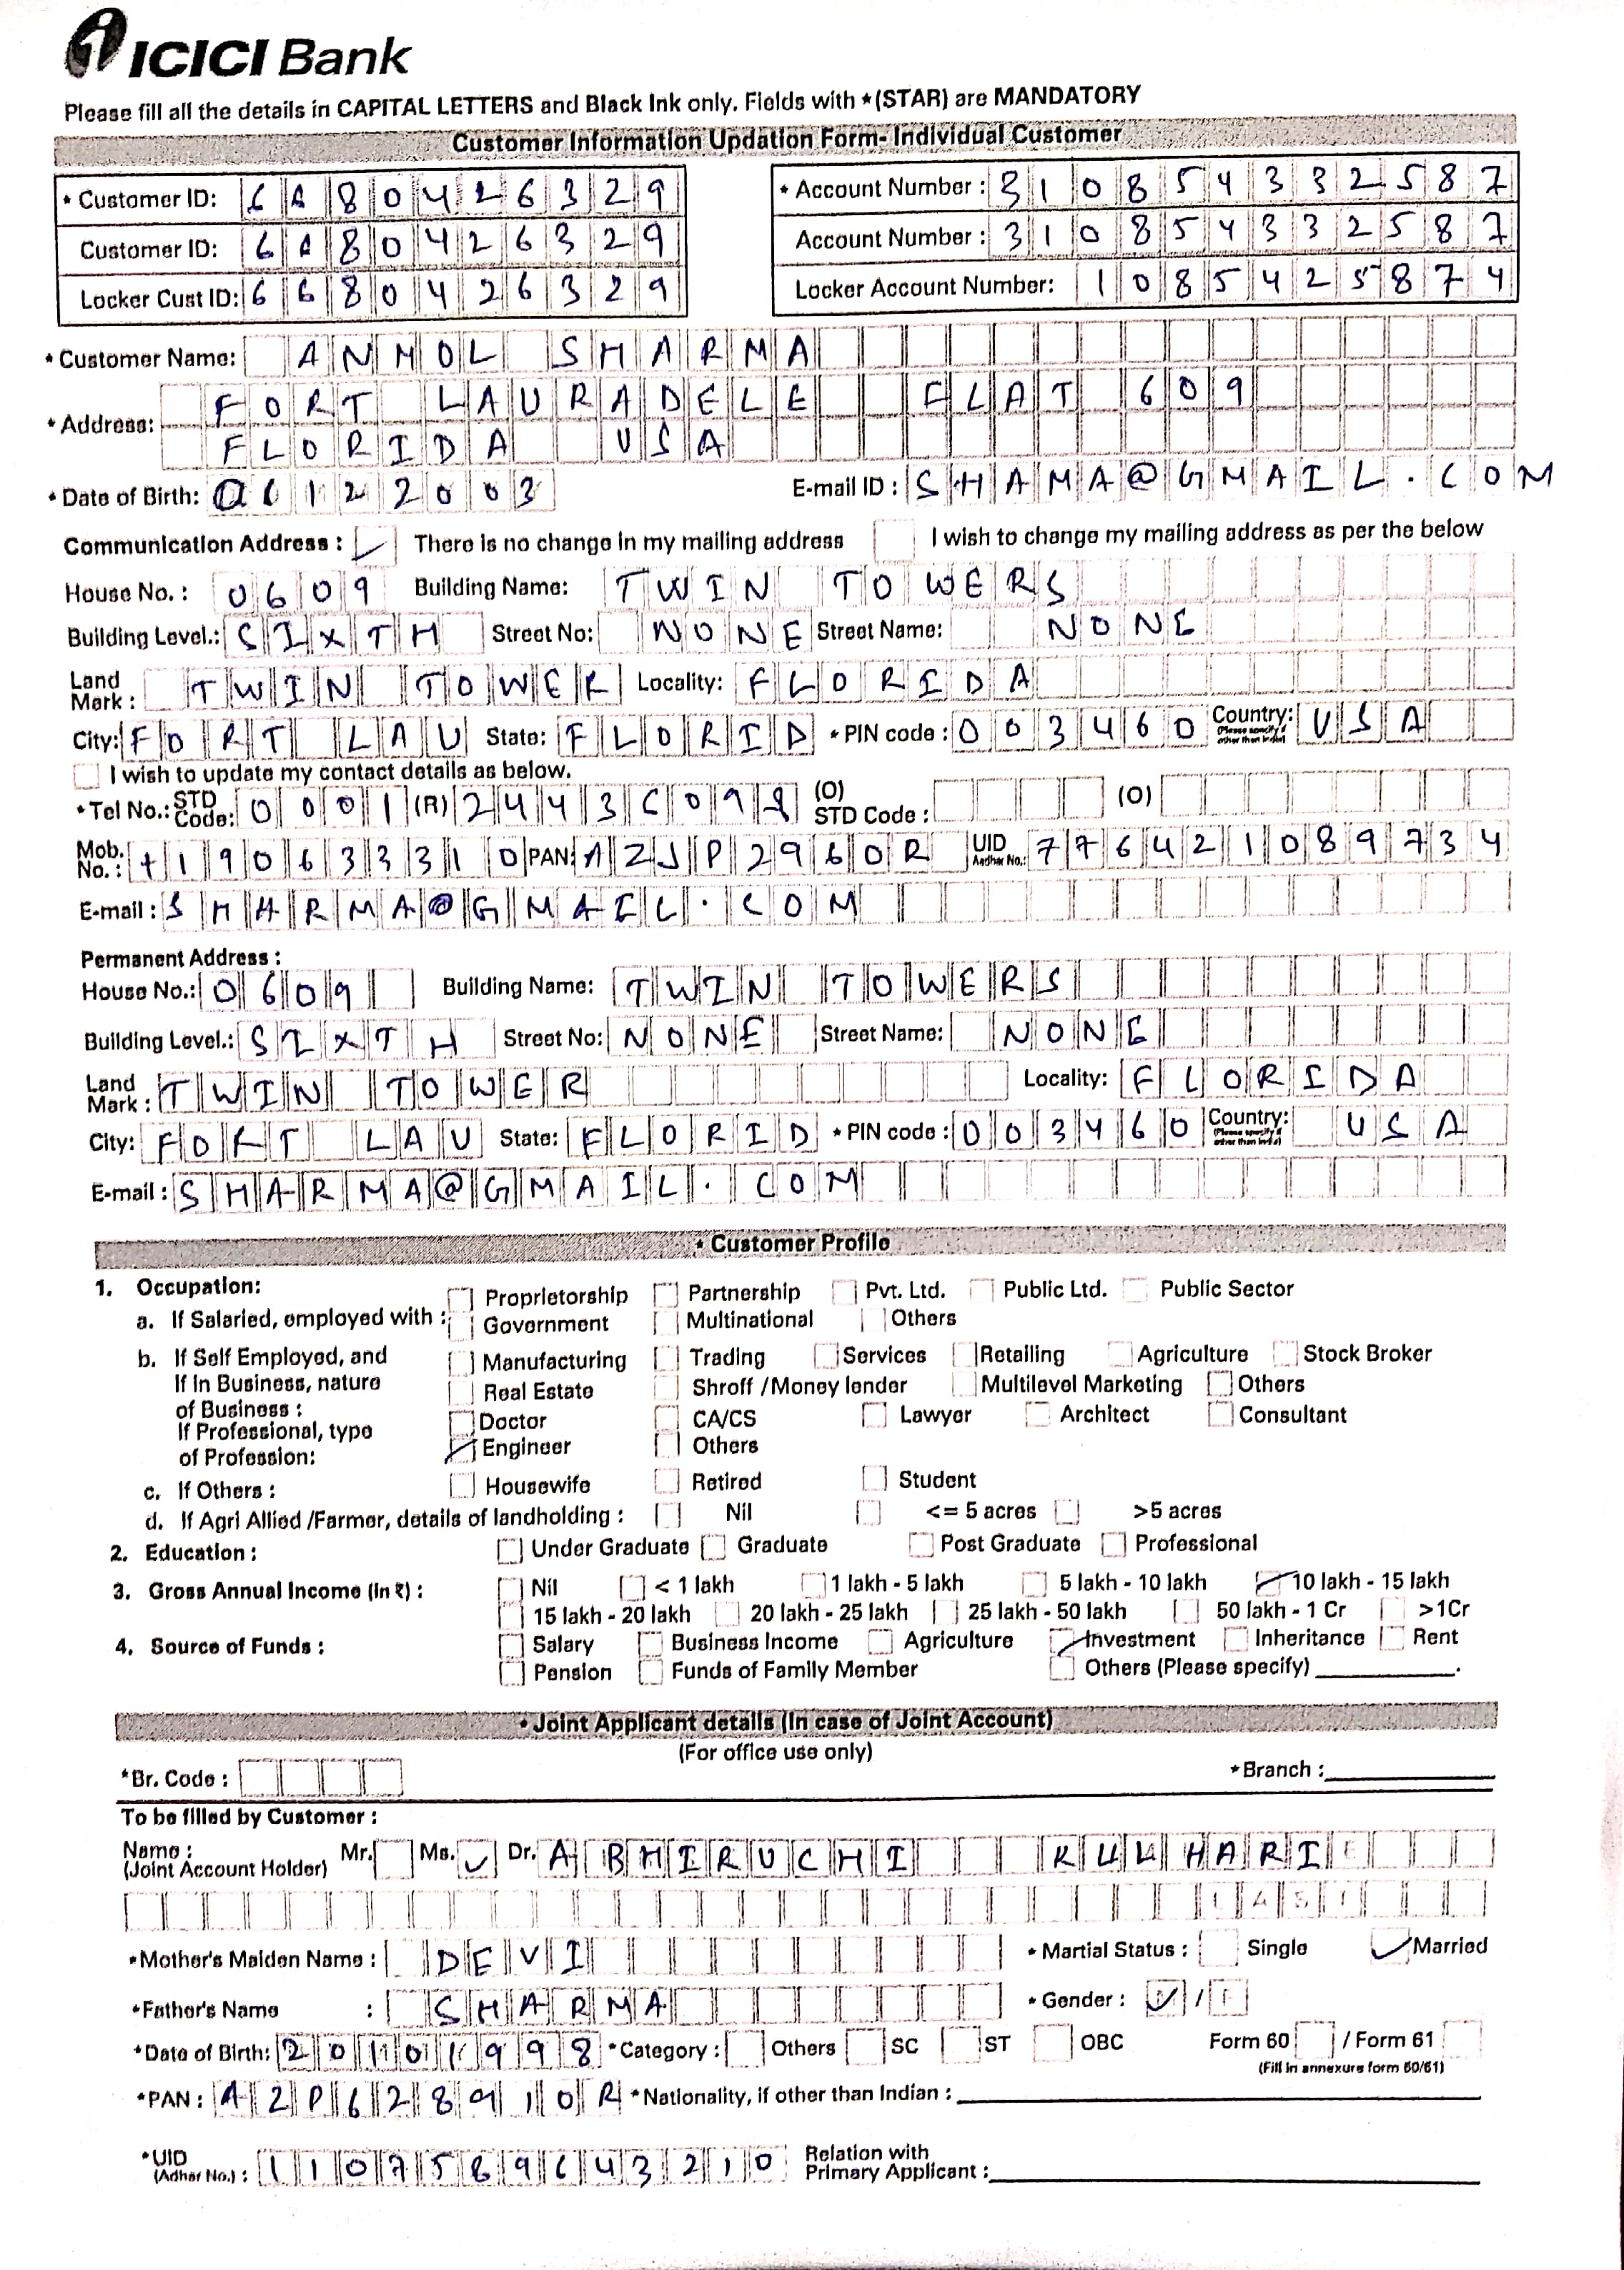 ICICI Bank
Please fill all the details in CAPITAL LETTERS and Black Ink only. Fields with *(STAR) are MANDATORY
Customer Information Updation Form- Individual Customer
* Customer ID: 6680426329 * Account Number : 310854332587
Customer ID: 6680426329 Account Number : 310854332587
Locker Cust ID: 6680426329 Locker Account Number: 1085425874
* Customer Name: ANMOL SHARMA
* Address: FORT LAURADELE FLAT 609
FLORIDA USA
* Date of Birth: 01122003 E-mail ID : SHAMA@GMAIL.COM
Communication Address : There is no change in my mailing address I wish to change my mailing address as per the below
House No. : 0609 Building Name: TWIN TOWERS
Building Level.: SIXTH Street No: NONE Street Name: NONE
Land Mark : TWIN TOWER Locality: FLORIDA
City: FORT LAU State: FLORID * PIN code : 003460 Country: (Please specify if other than India) USA
I wish to update my contact details as below.
* Tel No.: STD Code: 0001 (R) 2443 (O) STD Code : (O)
Mob. No. : +190633310 PAN: AZJP2960R UID Aadhar No.: 776421089734
E-mail : SHARMA@GMAIL.COM
Permanent Address :
House No.: 0609 Building Name: TWIN TOWERS
Building Level.: SIXTH Street No: NONE Street Name: NONE
Land Mark : TWIN TOWER Locality: FLORIDA
City: FORT LAU State: FLORID * PIN code : 003460 Country: (Please specify if other than India) USA
E-mail : SHARMA@GMAIL.COM
* Customer Profile
1. Occupation:
a. If Salaried, employed with : Proprietorship Partnership Pvt. Ltd. Public Ltd. Public Sector
Government Multinational Others
b. If Self Employed, and If in Business, nature of Business : Manufacturing Trading Services Retailing Agriculture Stock Broker
Real Estate Shroff /Money lender Multilevel Marketing Others
If Professional, type of Profession: Doctor CA/CS Lawyer Architect Consultant
Engineer Others
c. If Others : Housewife Retired Student
d. If Agri Allied /Farmer, details of landholding : Nil <= 5 acres >5 acres
2. Education : Under Graduate Graduate Post Graduate Professional
3. Gross Annual Income (in ₹) : Nil < 1 lakh 1 lakh - 5 lakh 5 lakh - 10 lakh 10 lakh - 15 lakh
15 lakh - 20 lakh 20 lakh - 25 lakh 25 lakh - 50 lakh 50 lakh - 1 Cr >1Cr
4. Source of Funds : Salary Business Income Agriculture Investment Inheritance Rent
Pension Funds of Family Member Others (Please specify)
* Joint Applicant details (In case of Joint Account)
(For office use only)
*Br. Code : *Branch :
To be filled by Customer :
Name : (Joint Account Holder) Mr. Ms. Dr. ABHIRUCHI KUKHARI
*Mother's Maiden Name : DEVI * Martial Status : Single Married
*Father's Name : SHARMA * Gender : M / F
*Date of Birth: 20101998 *Category : Others SC ST OBC Form 60 / Form 61
(Fill in annexure form 60/61)
*PAN : AZP628910R *Nationality, if other than Indian :
*UID (Adhar No.) : 1107589643210 Relation with Primary Applicant :